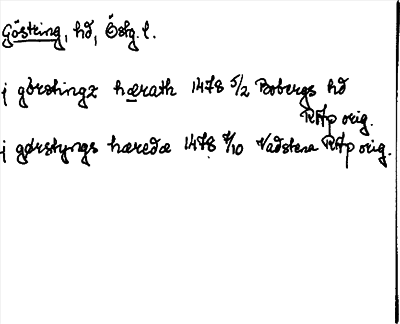 Göstring, hd, Östg. l.
j gørstingx hærath 1478 5/2 Bobergs hd
RAp orig.
j gørstyngs hæredæ 1478 7/10 Vadstena RAp orig.